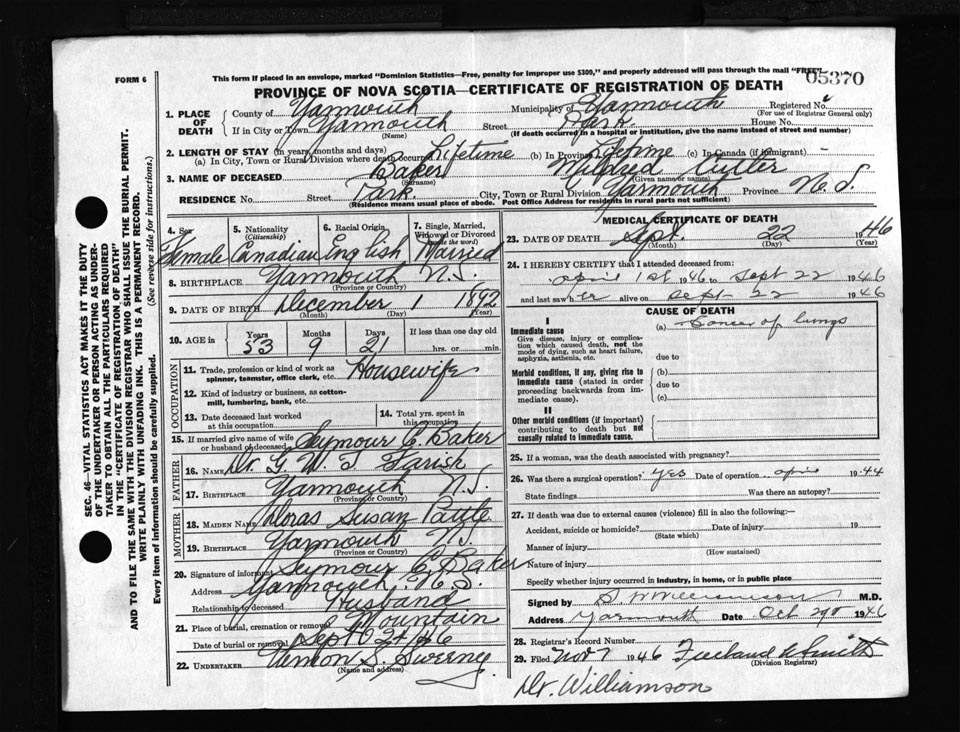 FORM 6
This form if placed in an envelope, marked "Dominion Statistics—Free, penalty for improper use $300," and properly addressed will pass through the mail "FREE"
05370
PROVINCE OF NOVA SCOTIA—CERTIFICATE OF REGISTRATION OF DEATH
1. PLACE OF DEATH
County of Yarmouth Municipality of Yarmouth Registered No.
(For use of Registrar General only)
If in City or Town Yarmouth Street Park House No.
(Name) (If death occurred in a hospital or institution, give the name instead of street and number)
2. LENGTH OF STAY (in years, months and days)
(a) In City, Town or Rural Division where death occurred Lifetime (b) In Province Lifetime (c) In Canada (if immigrant) -
3. NAME OF DECEASED Baker Mildred Cutler
(Surname) (Given name or names)
RESIDENCE No. Street Park City, Town or Rural Division Yarmouth Province N.S.
(Residence means usual place of abode. Post Office Address for residents in rural parts not sufficient)
4. Sex Female
5. Nationality (Citizenship) Canadian
6. Racial Origin English
7. Single, Married, Widowed or Divorced (write the word) Married
8. BIRTHPLACE Yarmouth N.S.
(Province or Country)
9. DATE OF BIRTH December 1 1892
(Month) (Day) (Year)
10. AGE in Years 53 Months 9 Days 21 If less than one day old hrs. or min.
OCCUPATION
11. Trade, profession or kind of work as spinner, teamster, office clerk, etc. Housewife
12. Kind of industry or business, as cotton-mill, lumbering, bank, etc.
13. Date deceased last worked at this occupation
14. Total yrs. spent in this occupation
15. If married give name of wife or husband of deceased Seymour C. Baker
FATHER
16. NAME Dr. G. W. T. Farish
17. BIRTHPLACE Yarmouth N.S.
(Province or Country)
MOTHER
18. MAIDEN NAME Susan
19. BIRTHPLACE Yarmouth N.S.
(Province or Country)
20. Signature of informant Seymour C. Baker
Address Yarmouth N.S.
Relationship to deceased Husband
21. Place of burial, cremation or removal Mountain
Date of burial or removal Sept 24 1946
22. UNDERTAKER Vernon S. Sweeney
(Name and address)
MEDICAL CERTIFICATE OF DEATH
23. DATE OF DEATH Sept. 22 1946
(Month) (Day) (Year)
24. I HEREBY CERTIFY that I attended deceased from:
April 1st 1946, to Sept 22 1946
and last saw her alive on Sept 22 1946
CAUSE OF DEATH
I
Immediate cause
Give disease, injury or complication which caused death, not the mode of dying, such as heart failure, asphyxia, asthenia, etc.
(a) Cancer of lungs
due to
Morbid conditions, if any, giving rise to immediate cause (stated in order proceeding backwards from immediate cause)
(b)
due to
(c)
II
Other morbid conditions (if important) contributing to death but not causally related to immediate cause.
25. If a woman, was the death associated with pregnancy?
26. Was there a surgical operation? yes Date of operation April 1944
State findings Was there an autopsy?
27. If death was due to external causes (violence) fill in also the following:—
Accident, suicide or homicide? Date of injury 19
(State which)
Manner of injury
(How sustained)
Nature of injury
Specify whether injury occurred in industry, in home, or in public place
Signed by S W Williamson M.D.
Address Yarmouth Date Oct 29th 1946
28. Registrar's Record Number
29. Filed Nov 7 1946 Smith
(Division Registrar)
Dr. Williamson
SEC. 46—VITAL STATISTICS ACT MAKES IT THE DUTY
OF THE UNDERTAKER OR PERSON ACTING AS UNDER-
TAKER TO OBTAIN ALL THE PARTICULARS REQUIRED
IN THE "CERTIFICATE OF REGISTRATION OF DEATH"
AND TO FILE THE SAME WITH THE DIVISION REGISTRAR WHO SHALL ISSUE THE BURIAL PERMIT.
WRITE PLAINLY WITH UNFADING INK. THIS IS A PERMANENT RECORD.
Every item of information should be carefully supplied. (See reverse side for instructions.)